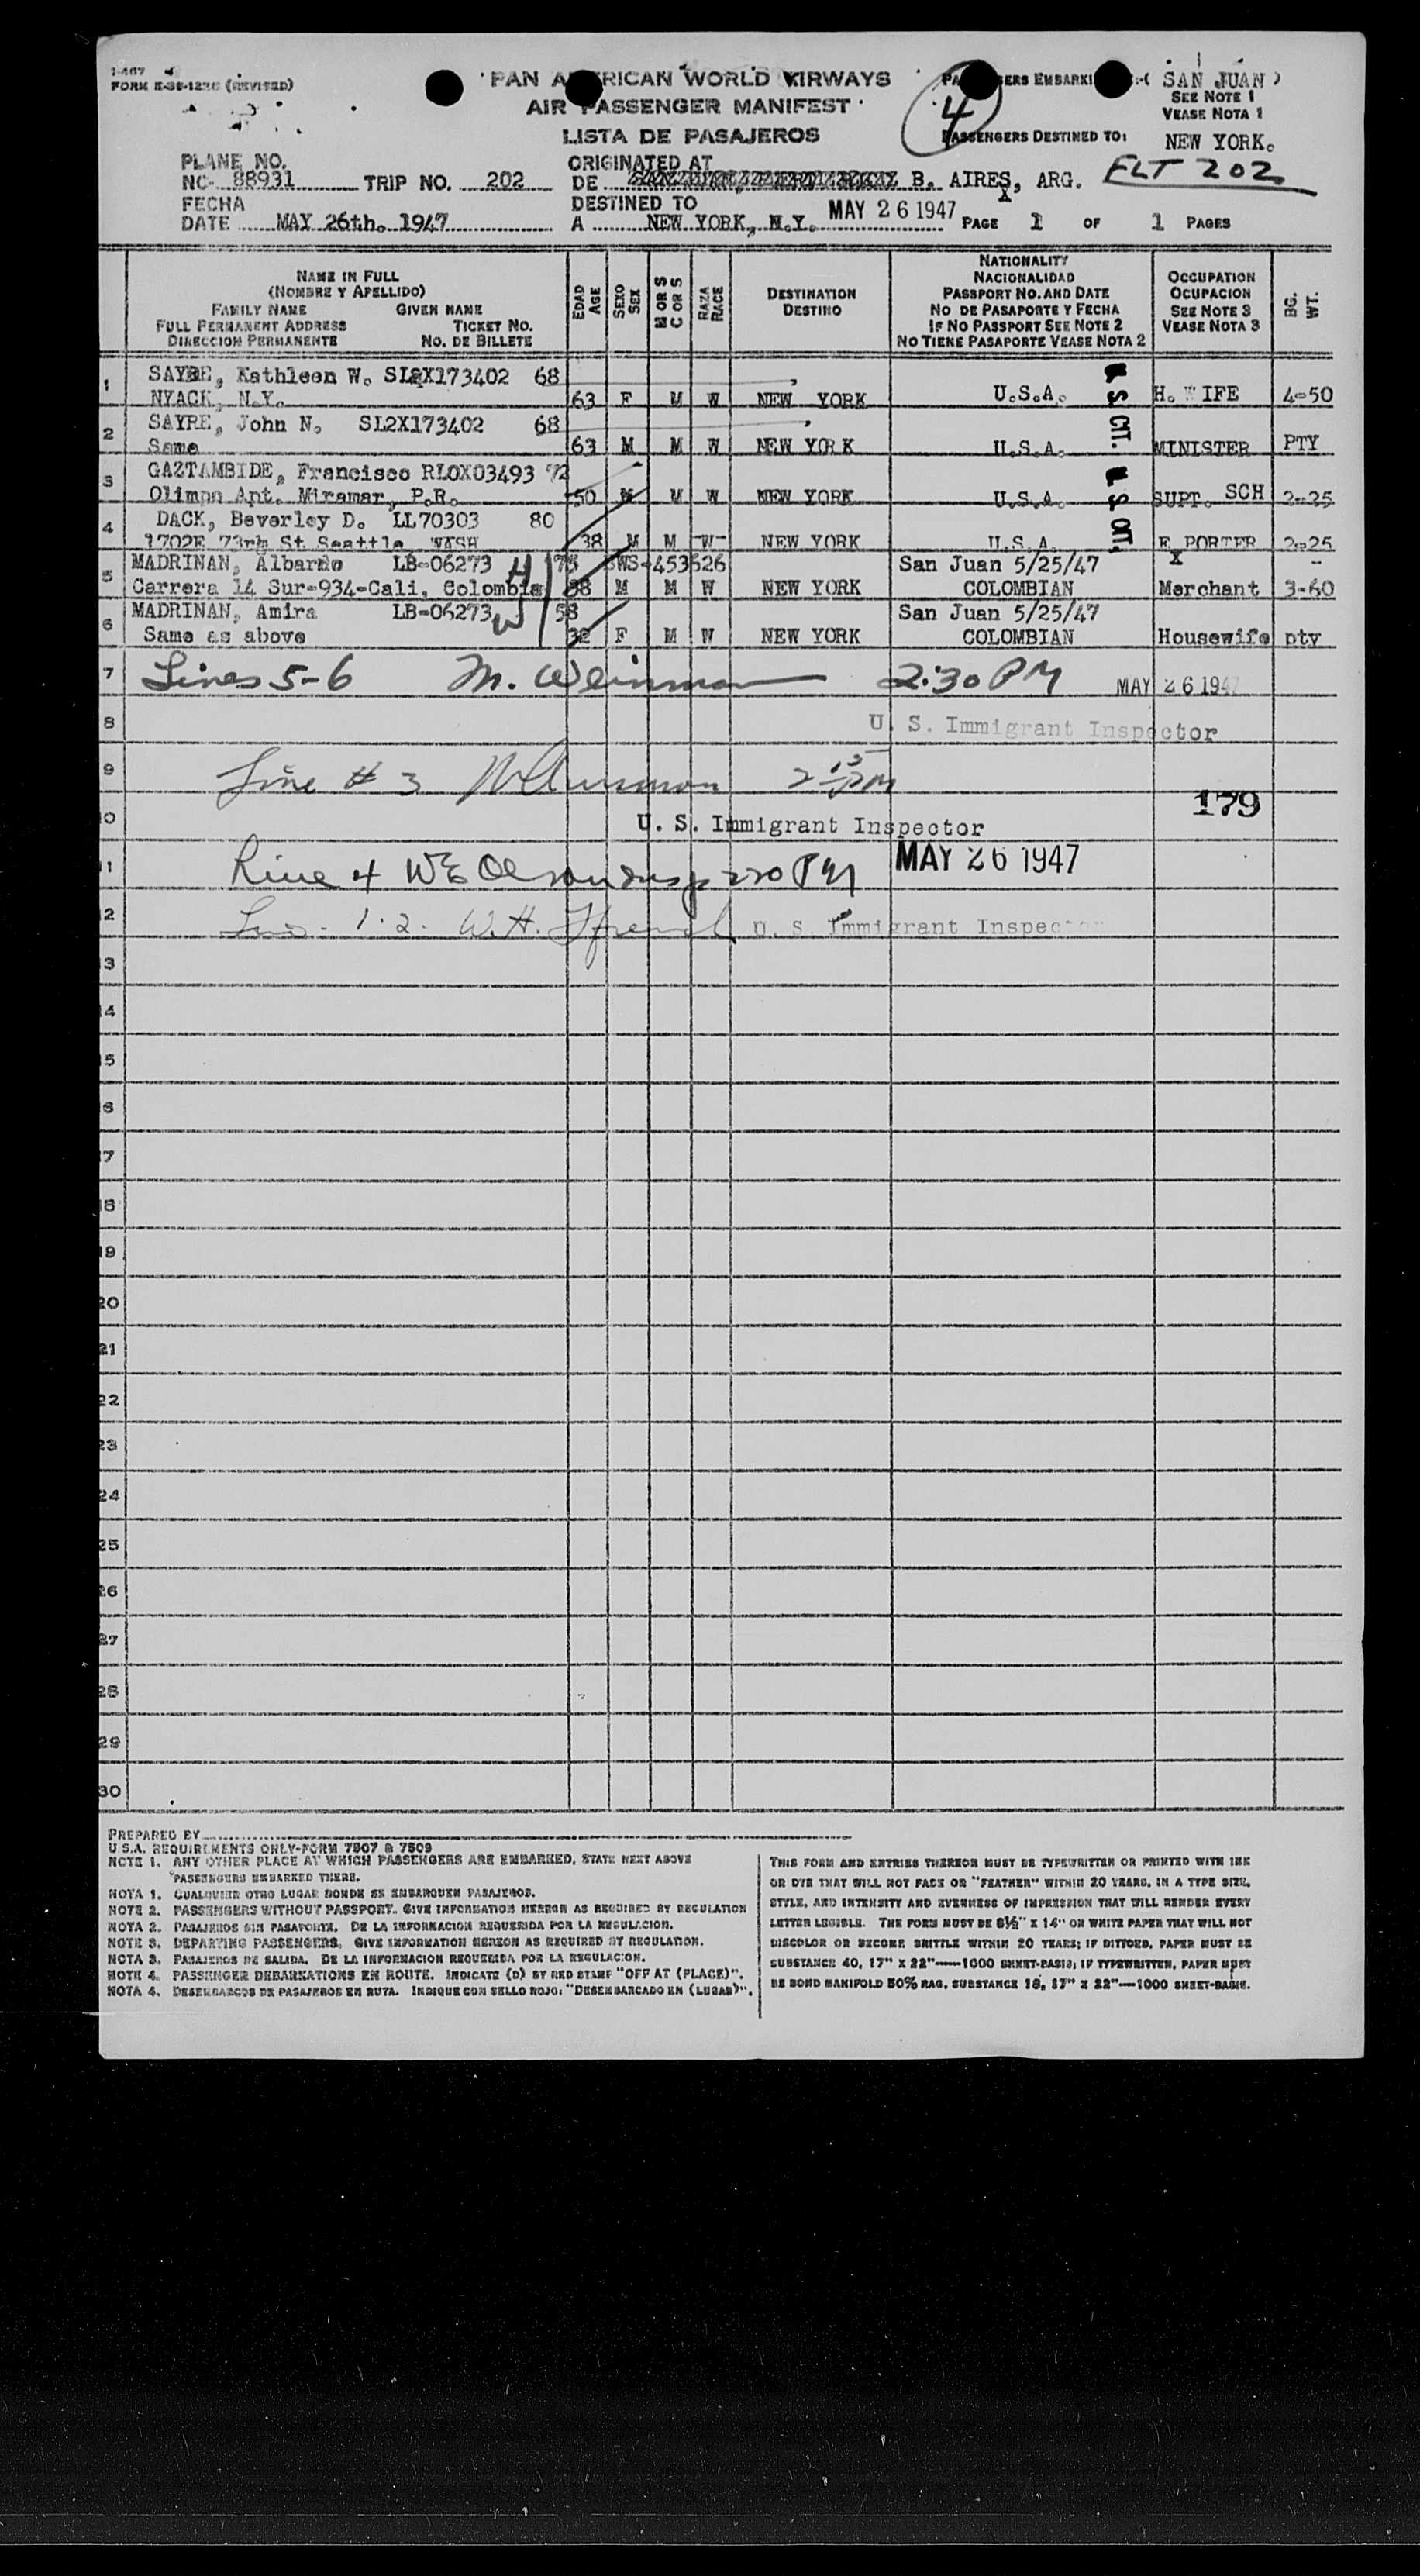 I-467
FORM (REVISED)
PAN AMERICAN WORLD AIRWAYS
AIR PASSENGER MANIFEST
LISTA DE PASAJEROS
PASSENGERS EMBARKING ( SAN JUAN )
SEE NOTE 1
VEASE NOTA 1
4
PASSENGERS DESTINED TO: NEW YORK.
FLT 202
PLANE NO.
NC- 88931 TRIP NO. 202
ORIGINATED AT
DE B. AIRES, ARG.
FECHA
DATE MAY 26th. 1947
DESTINED TO
A NEW YORK, N.Y. MAY 26 1947 PAGE 1 OF 1 PAGES
NAME IN FULL
(NOMBRE Y APELLIDO)
FAMILY NAME GIVEN NAME
FULL PERMANENT ADDRESS TICKET NO.
DIRECCION PERMANENTE NO. DE BILLETE
EDAD AGE
SEXO SEX
M OR S C OR S
RAZA RACE
DESTINATION
DESTINO
NATIONALITY
NACIONALIDAD
PASSPORT NO. AND DATE
NO DE PASAPORTE Y FECHA
IF NO PASSPORT SEE NOTE 2
NO TIENE PASAPORTE VEASE NOTA 2
OCCUPATION
OCUPACION
SEE NOTE 3
VEASE NOTA 3
BG. WT.
1 SAYRE, Kathleen W. SL2X173402 68
NYACK, N.Y. 63 F M W NEW YORK U.S.A. H. WIFE 4-50
U S CIT.
2 SAYRE, John N. SL2X173402 68
Same 63 M M W NEW YORK U.S.A. MINISTER PTY
3 GAZTAMBIDE, Francisco RLOX03493 72
Olimpo Apt. Miramar, P.R. 50 M M W NEW YORK U.S.A. SUPT. SCH 2-25
U S CIT.
4 DACK, Beverley D. LL70303 80
1702E 73rh St Seattle, WASH 38 M M W NEW YORK U.S.A. E PORTER 2-25
5 MADRINAN, Albardo LB-06273 H 75 SWS-453626 San Juan 5/25/47 X -
Carrera 14 Sur-934-Cali, Colombia 38 M M W NEW YORK COLOMBIAN Merchant 3-60
6 MADRINAN, Amira LB-06273 W 58 San Juan 5/25/47
Same as above 32 F M W NEW YORK COLOMBIAN Housewife pty
7 Lines 5-6 M. Weinman 2:30 PM MAY 26 1947
8 U. S. Immigrant Inspector
9 Line # 3 2 15 PM
179
10 U. S. Immigrant Inspector
11 Line 4 WE Olson Insp 220 PM MAY 26 1947
12 1-2. W.H. U. S. Immigrant Inspector
13
14
15
16
17
18
19
20
21
22
23
24
25
26
27
28
29
30
PREPARED BY
U.S.A. REQUIREMENTS ONLY-FORM 7507 & 7509
NOTE 1. ANY OTHER PLACE AT WHICH PASSENGERS ARE EMBARKED, STATE NEXT ABOVE
"PASSENGERS EMBARKED THERE.
NOTA 1. CUALQUIER OTRO LUGAR DONDE SE EMBARQUEN PASAJEROS.
NOTE 2. PASSENGERS WITHOUT PASSPORT. GIVE INFORMATION HEREON AS REQUIRED BY REGULATION
NOTA 2. PASAJEROS SIN PASAPORTE. DE LA INFORMACION REQUERIDA POR LA REGULACION.
NOTE 3. DEPARTING PASSENGERS. GIVE INFORMATION HEREON AS REQUIRED BY REGULATION.
NOTA 3. PASAJEROS DE SALIDA. DE LA INFORMACION REQUERIDA POR LA REGULACION.
NOTE 4. PASSENGER DEBARKATIONS EN ROUTE. INDICATE (D) BY RED STAMP "OFF AT (PLACE)".
NOTA 4. DESEMBARCOS DE PASAJEROS EN RUTA. INDIQUE CON SELLO ROJO: "DESEMBARCADO EN (LUGAR)".
THIS FORM AND ENTRIES THEREON MUST BE TYPEWRITTEN OR PRINTED WITH INK
OR DYE THAT WILL NOT FADE OR "FEATHER" WITHIN 20 YEARS, IN A TYPE SIZE,
STYLE, AND INTENSITY AND EVENNESS OF IMPRESSION THAT WILL RENDER EVERY
LETTER LEGIBLE. THE FORM MUST BE 8½" X 14" ON WHITE PAPER THAT WILL NOT
DISCOLOR OR BECOME BRITTLE WITHIN 20 YEARS; IF DITTOED, PAPER MUST BE
SUBSTANCE 40, 17" X 22"—1000 SHEET-BASIS; IF TYPEWRITTEN, PAPER MUST
BE BOND MANIFOLD 50% RAG, SUBSTANCE 16, 17" X 22"—1000 SHEET-BASIS.